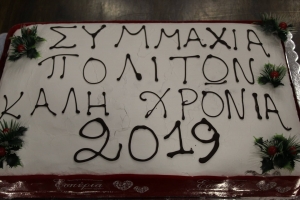 ΣΥΜΜΑΧΙΑ
ΠΟΛΙΤΩΝ
ΚΑΛΗ ΧΡΟΝΙΑ
2019